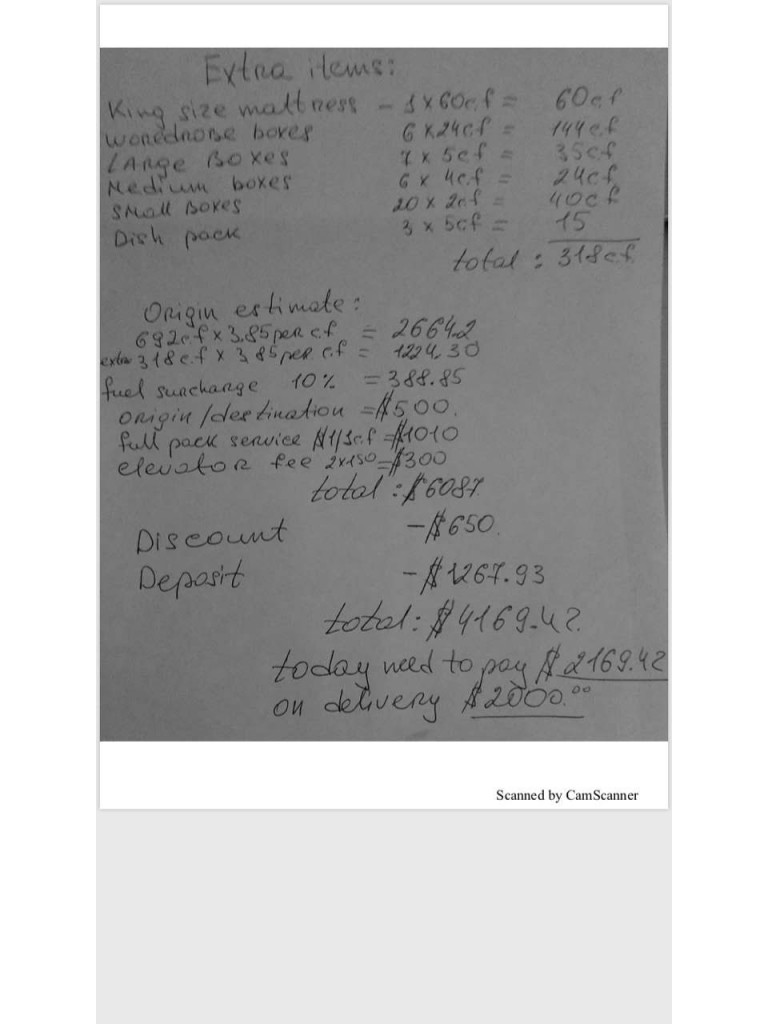 Extra items:
King size mattress - 1 x 60c.f = 60c.f
Woredrobe boxes 6 x 24c.f = 144c.f
Large Boxes 7 x 5c.f = 35c.f
Medium boxes 6 x 4c.f = 24c.f
Small Boxes 20 x 2c.f = 40c.f
Dish pack 3 x 5c.f = 15
total : 318c.f.
Origin estimate:
692c.f x 3.85 per c.f = 2664.2
extra 318c.f x 3,85 per c.f = 1224.30
fuel surcharge 10% = 388.85
origin/destination = $500.
full pack service $1/1c.f = $1010
elevator fee 2x150 = $300
total : $6087.
Discount -$650.
Deposit -$1267.93
total: $4169.42.
today need to pay $2169.42
on delivery $2000.00
Scanned by CamScanner